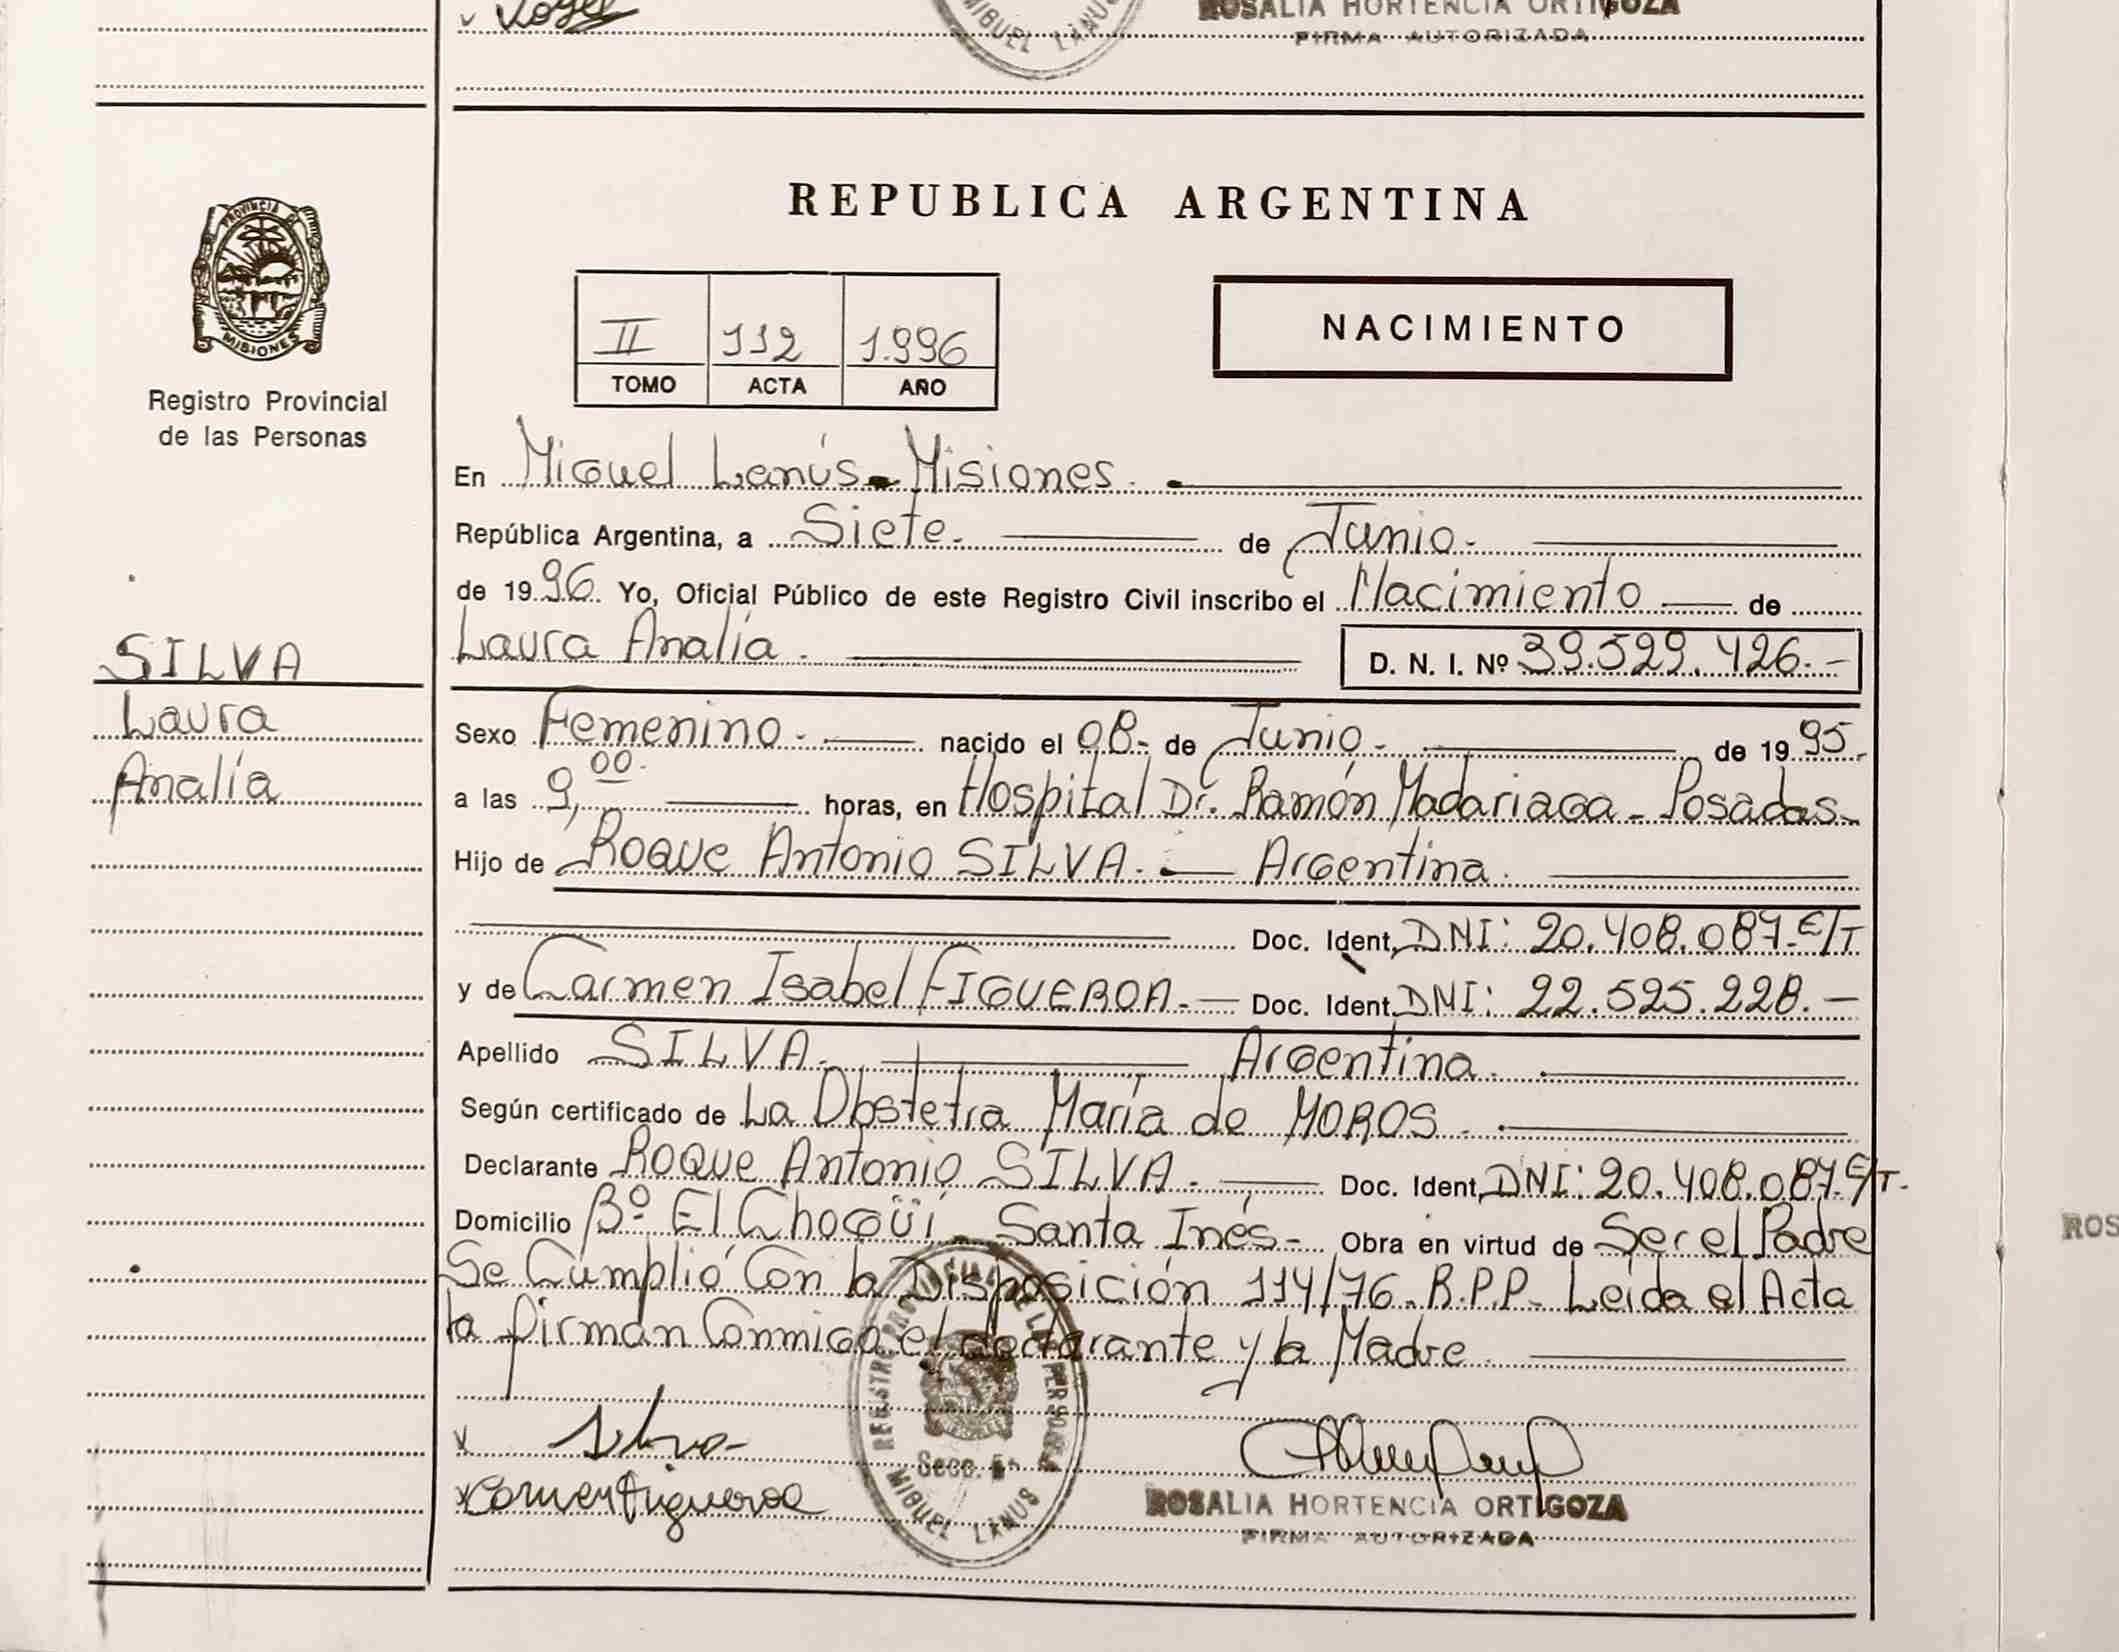 ROSALIA HORTENCIA ORTIGOZA
MIGUEL LANUS
FIRMA AUTORIZADA
REPUBLICA ARGENTINA
PROVINCIA DE
MISIONES
Registro Provincial
de las Personas
II 112 1.996
TOMO ACTA AÑO
NACIMIENTO
En Miguel Lanús - Misiones.
República Argentina, a Siete. de Junio.
de 1996. Yo, Oficial Público de este Registro Civil inscribo el Nacimiento de
Laura Analía. D. N. I. Nº 39.529.426.-
SILVA
Laura
Analía
Sexo Femenino. nacido el 08- de Junio. de 1995.
a las 9,00. horas, en Hospital Dr. Ramón Madariaga - Posadas-
Hijo de Roque Antonio SILVA. Argentina.
Doc. Ident. DNI: 20.408.087.E/T
y de Carmen Isabel FIGUEROA. Doc. Ident. DNI: 22.525.228.-
Apellido SILVA. Argentina.
Según certificado de La Obstetra María de MOROS.
Declarante Roque Antonio SILVA. Doc. Ident. DNI: 20.408.087.E/T.
Domicilio Bº El Chogüí - Santa Inés- Obra en virtud de Ser el Padre
Se Cumplió Con la Disposición 114/76. R.P.P. Leída el Acta
la firman Conmigo el declarante y la Madre
Silva
Carmen Figueroa
REGISTRO PROVINCIAL DE LAS PERSONAS
Secc. 5ª
MIGUEL LANUS
ROSALIA HORTENCIA ORTIGOZA
FIRMA AUTORIZADA
ROS